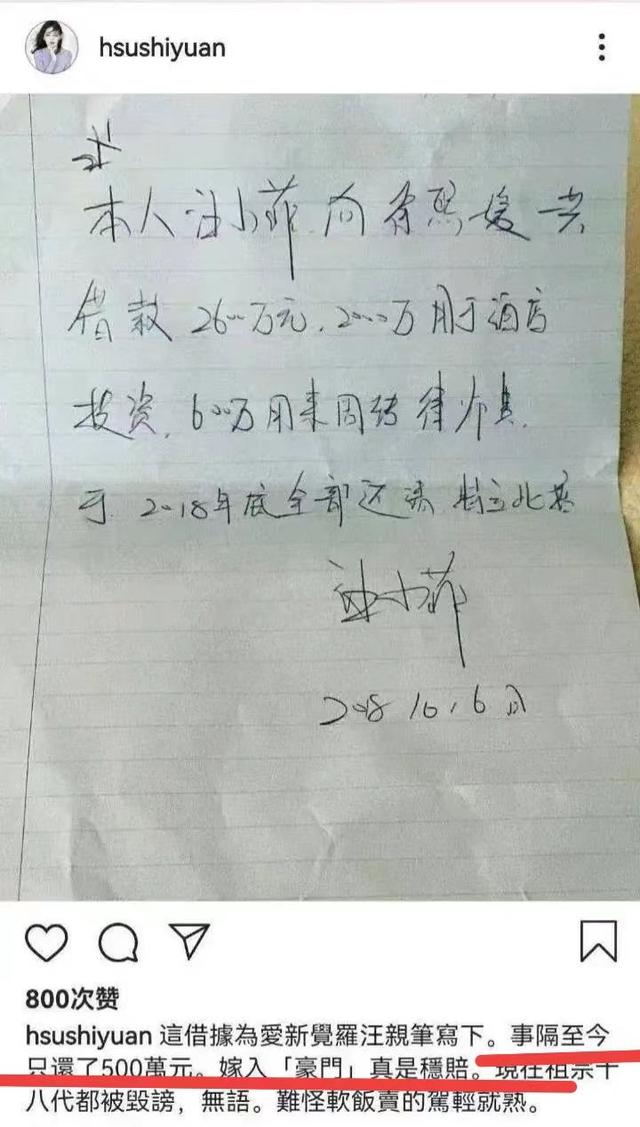 hsushiyuan
本人汪小菲向徐熙媛共
借款2600万元.2000万用于酒店
投资.600万用来周转律师费.
于2018年底全部还清 特立此据
汪小菲
2018 10.6日
800次赞
hsushiyuan 這借據為愛新覺羅汪親筆寫下。事隔至今
只還了500萬元。嫁入「豪門」真是穩賠。現在祖宗十
八代都被毀謗，無語。難怪軟飯賣的駕輕就熟。